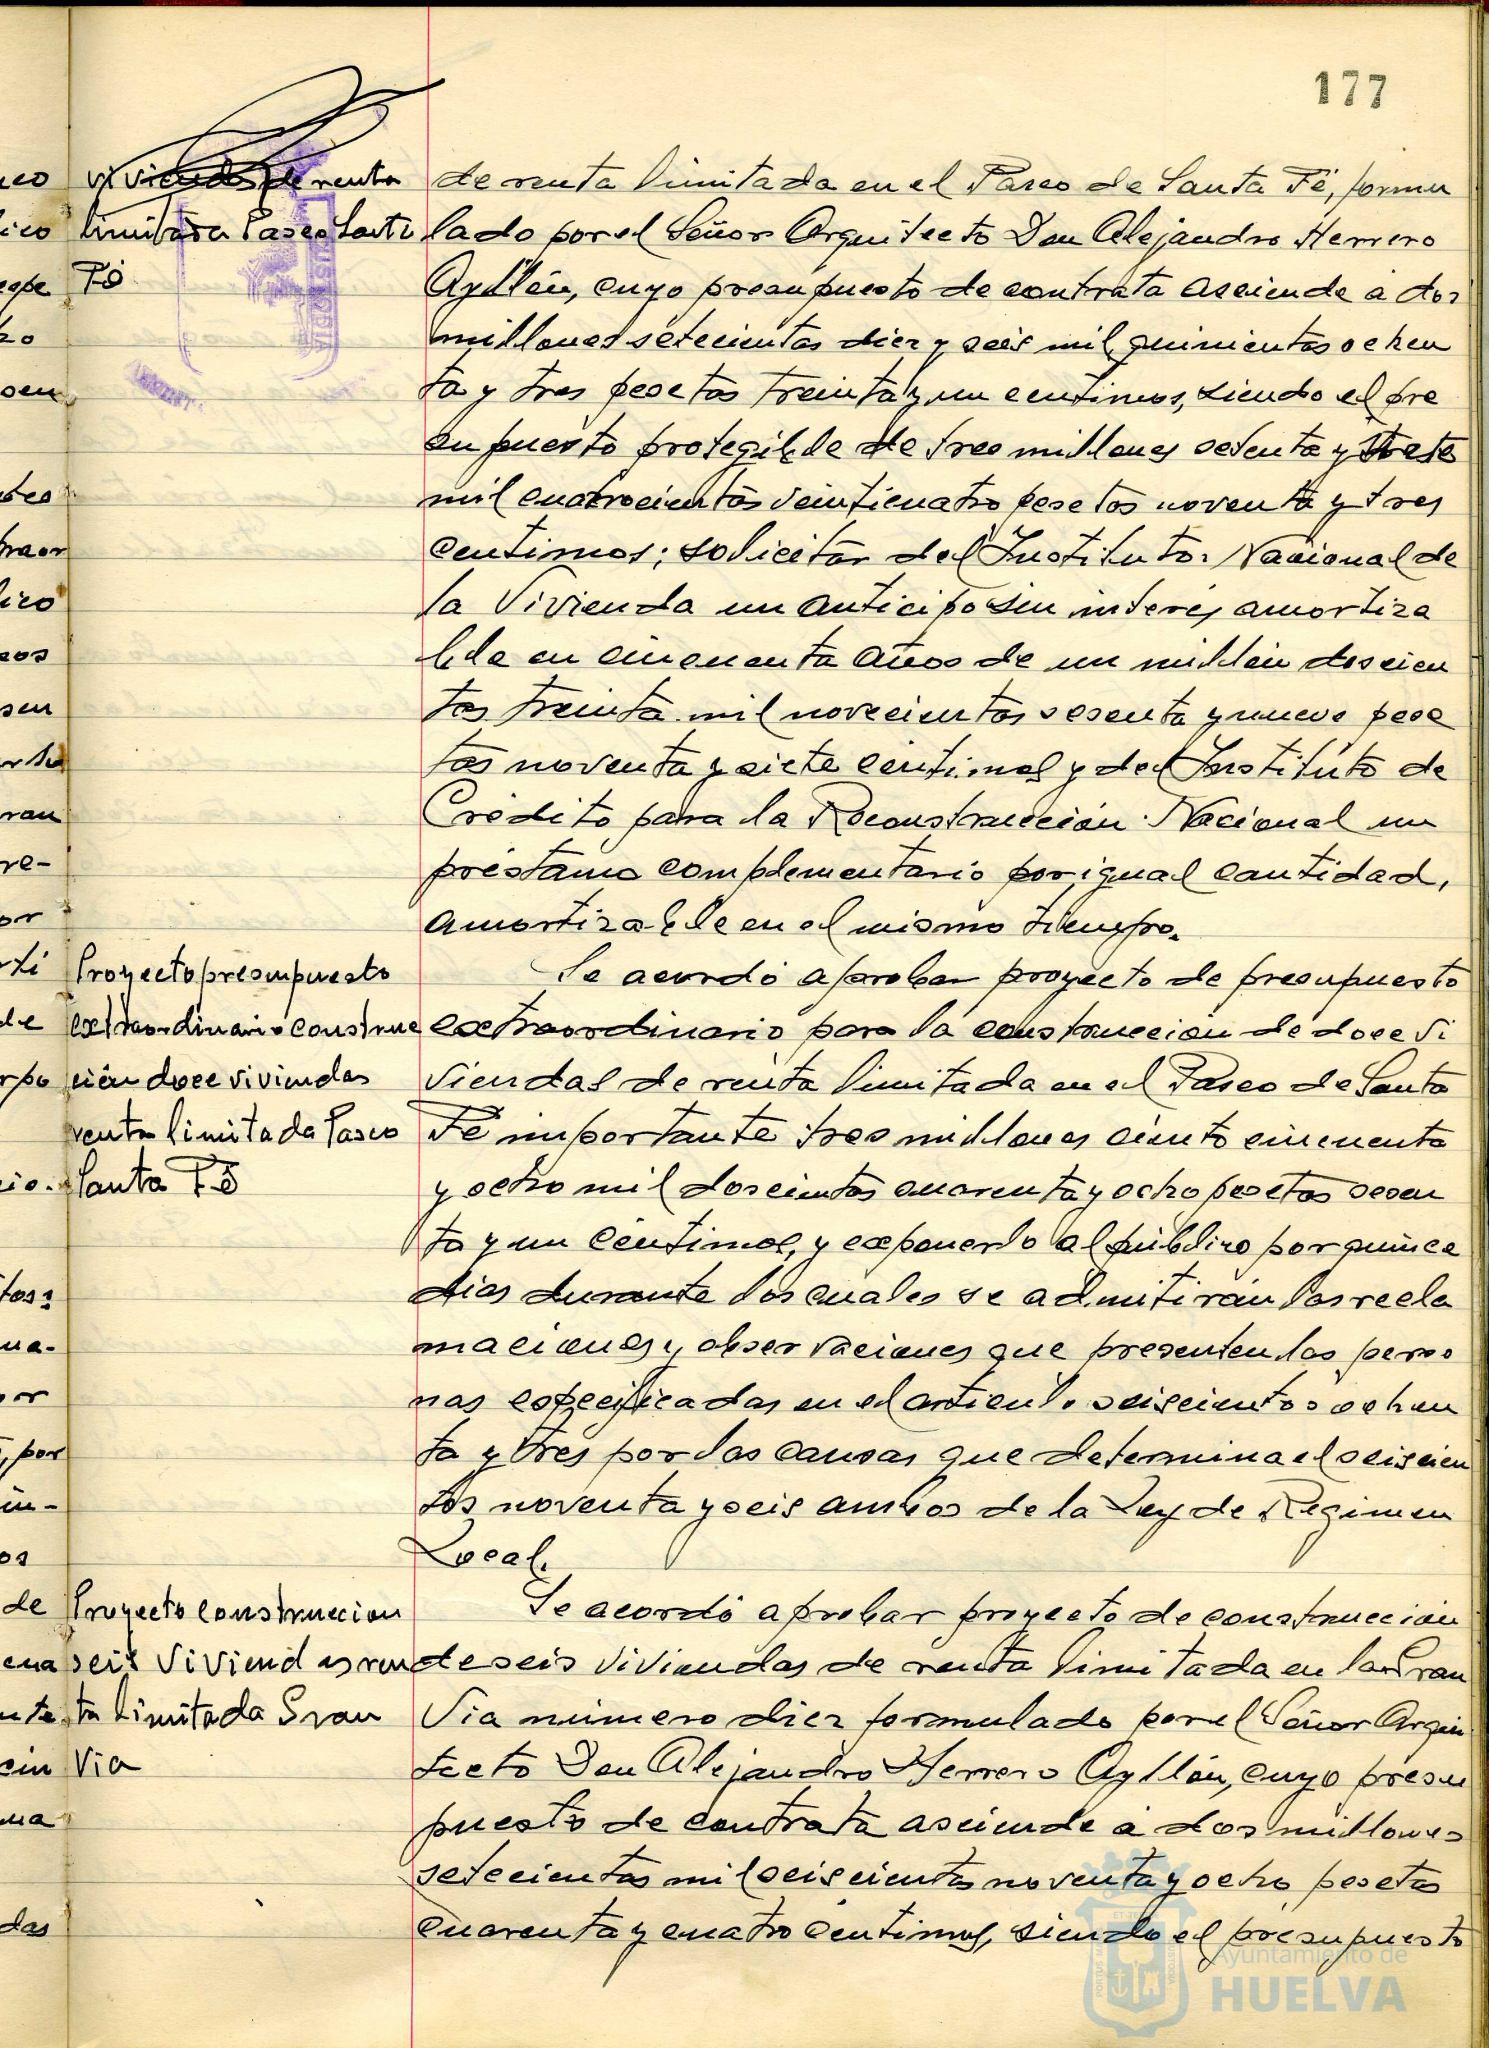 177
viviendas de renta
limitada Paseo Santa
Fé
de renta limitada en el Paseo de Santa Fé, formu
lado por el Señor Arquitecto Don Alejandro Herrero
Ayllón, cuyo presupuesto de contrata asciende a dos
millones setecientas diez y seis mil quinientas ochen
ta y tres pesetas treinta y un centimos, siendo el pre
supuesto protegible de tres millones setenta y siete
mil cuatrocientas veinticuatro pesetas noventa y tres
centimos; solicitar del Instituto Nacional de
la Vivienda un anticipo sin interés amortiza
ble en cincuenta años de un millón doscien
tas treinta mil novecientas sesenta y nueve pese
tas noventa y siete céntimos y del Instituto de
Crédito para la Reconstrucción Nacional un
préstamo complementario por igual cantidad,
amortizable en el mismo tiempo.
Proyecto presupuesto
extraordinario construc
ción doce viviendas
renta limitada Paseo
Santa Fé
Se acordó aprobar proyecto de presupuesto
extraordinario para la construcción de doce vi
viendas de renta limitada en el Paseo de Santa
Fé importante tres millones ciento cincuenta
y ocho mil doscientas cuarenta y ocho pesetas sesen
ta y un céntimos, y exponerlo al público por quince
dias durante los cuales se admitirán las recla
maciones y observaciones que presenten las perso
nas especificadas en el articulo seiscientos ochen
ta y tres por las causas que determina el seiscien
tos noventa y seis ambos de la Ley de Régimen
Local.
Proyecto construccion
seis viviendas ren
ta limitada Gran
Via
Se acordó aprobar proyecto de construcción
de seis viviendas de renta limitada en la Gran
Via número diez formulado por el Señor Arqui
tecto Don Alejandro Herrero Ayllón, cuyo presu
puesto de contrata asciende a dos millones
setecientas mil seiscientas noventa y ocho pesetas
cuarenta y cuatro céntimos, siendo el presupuesto
Ayuntamiento de
HUELVA